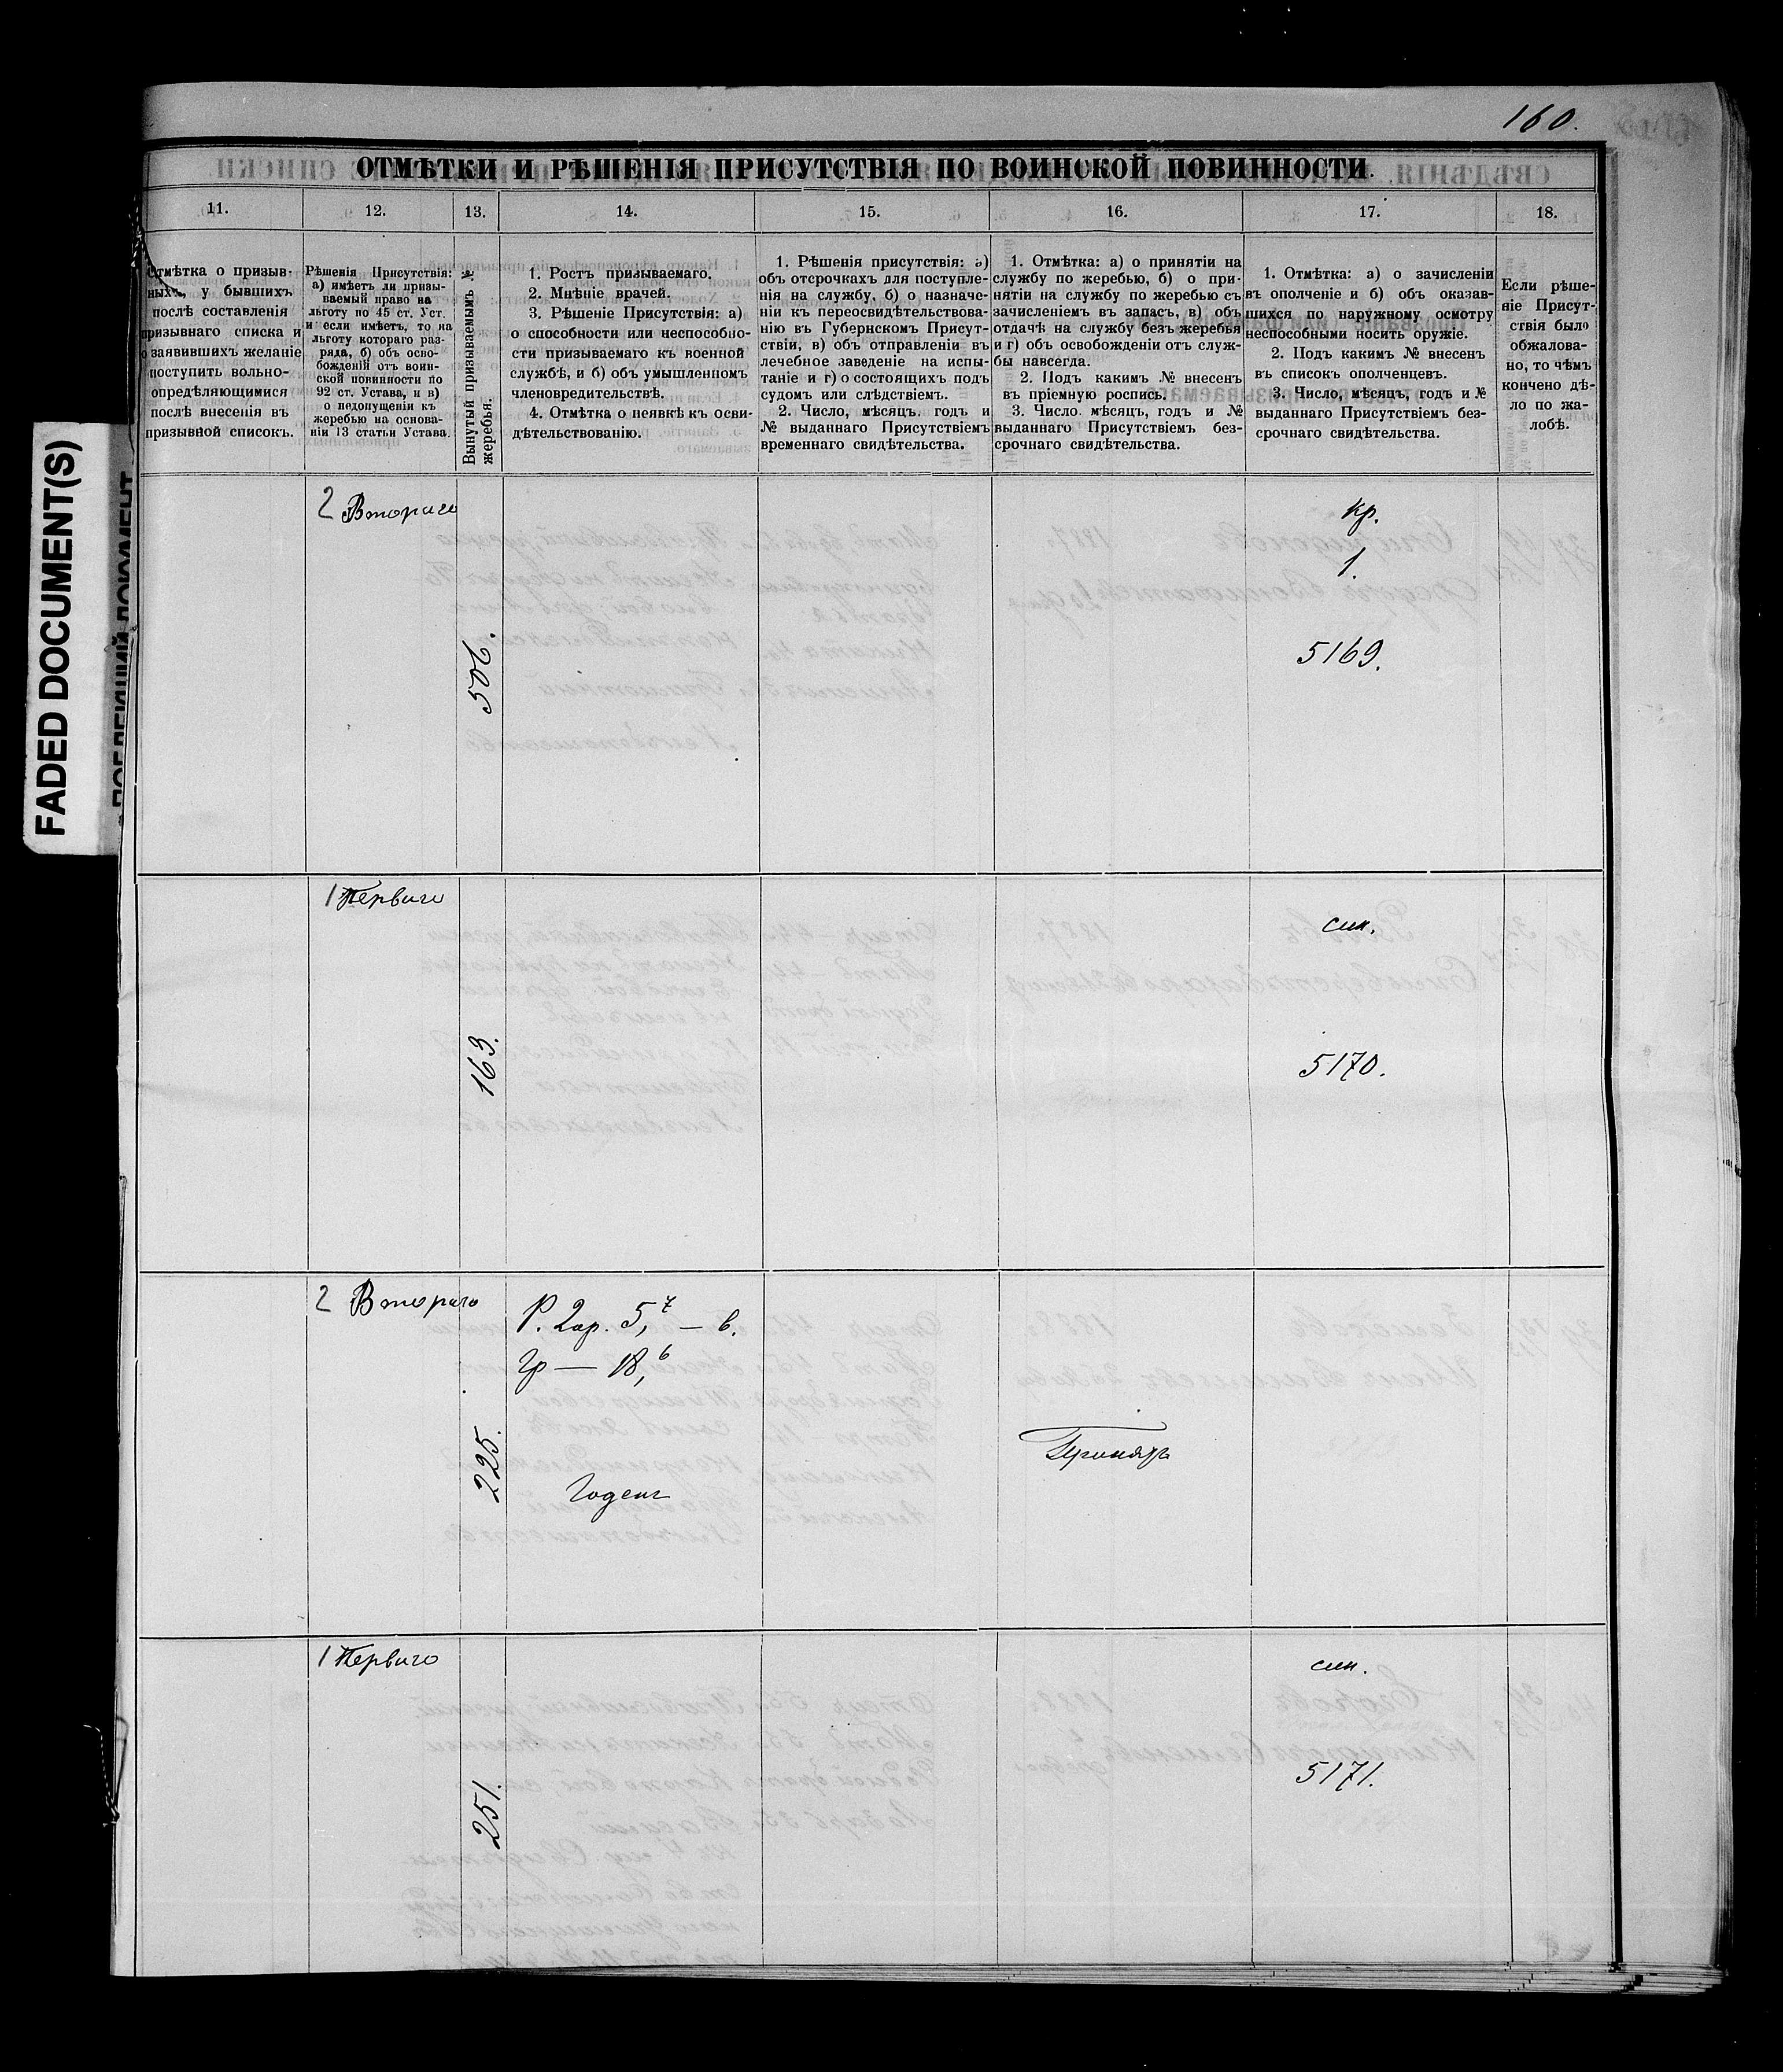 160.
ОТМѢТКИ И РѢШЕНІЯ ПРИСУТСТВІЯ ПО ВОИНСКОЙ ПОВИННОСТИ.
11. 12. 13. 14. 15. 16. 17. 18.
Отмѣтка о призыв-
ныхъ, у бывшихъ
послѣ составленія
призывнаго списка и
о заявившихъ желаніе
поступить вольно-
опредѣляющимися
послѣ внесенія въ
призывной списокъ.
Рѣшенія Присутствія:
а) имѣетъ ли призы-
ваемый право на
льготу по 45 ст. Уст.
и если имѣетъ, то на
льготу котораго раз-
ряда, б) объ осво-
божденіи отъ воин-
ской повинности по
92 ст. Устава, и в)
о недопущеніи къ
жеребью на основа-
ніи 13 статьи Устава.
Вынутый призываемымъ №
жеребья.
1. Ростъ призываемаго.
2. Мнѣніе врачей.
3. Рѣшеніе Присутствія: а)
о способности или неспособно-
сти призываемаго къ военной
службѣ, и б) объ умышленномъ
членовредительствѣ.
4. Отмѣтка о неявкѣ къ осви-
дѣтельствованію.
1. Рѣшенія присутствія: а)
объ отсрочкахъ для поступле-
нія на службу, б) о назначе-
ніи къ переосвидѣтельствова-
нію въ Губернскомъ Присут-
ствіи, в) объ отправленіи въ
лечебное заведеніе на испы-
таніе и г) о состоящихъ подъ
судомъ или слѣдствіемъ.
2. Число, мѣсяцъ, годъ и
№ выданнаго Присутствіемъ
временнаго свидѣтельства.
1. Отмѣтка: а) о принятіи на
службу по жеребью, б) о при-
нятіи на службу по жеребью съ
зачисленіемъ въ запасъ, в) объ
отдачѣ на службу безъ жеребья
и г) объ освобожденіи отъ служ-
бы навсегда.
2. Подъ какимъ № внесенъ
въ пріемную роспись.
3. Число, мѣсяцъ, годъ и №
выданнаго Присутствіемъ без-
срочнаго свидѣтельства.
1. Отмѣтка: а) о зачисленіи
въ ополченіе и б) объ оказав-
шихся по наружному осмотру
неспособными носить оружіе.
2. Подъ какимъ № внесенъ
въ списокъ ополченцевъ.
3. Число, мѣсяцъ, годъ и №
выданнаго Присутствіемъ без-
срочнаго свидѣтельства.
Если рѣше-
ніе Присут-
ствія было
обжалова-
но, то чѣмъ
кончено дѣ-
ло по жа-
лобѣ.
FADED DOCUMENT(S)
2 Втораго
506.
кр.
1.
5169.
1 Перваго
163.
син.
5170.
2 Втораго
225.
Р. 2ар. 5,7 — в.
Гр — 18,6
Годенъ
Принятъ
1 Перваго
251.
син.
5171.